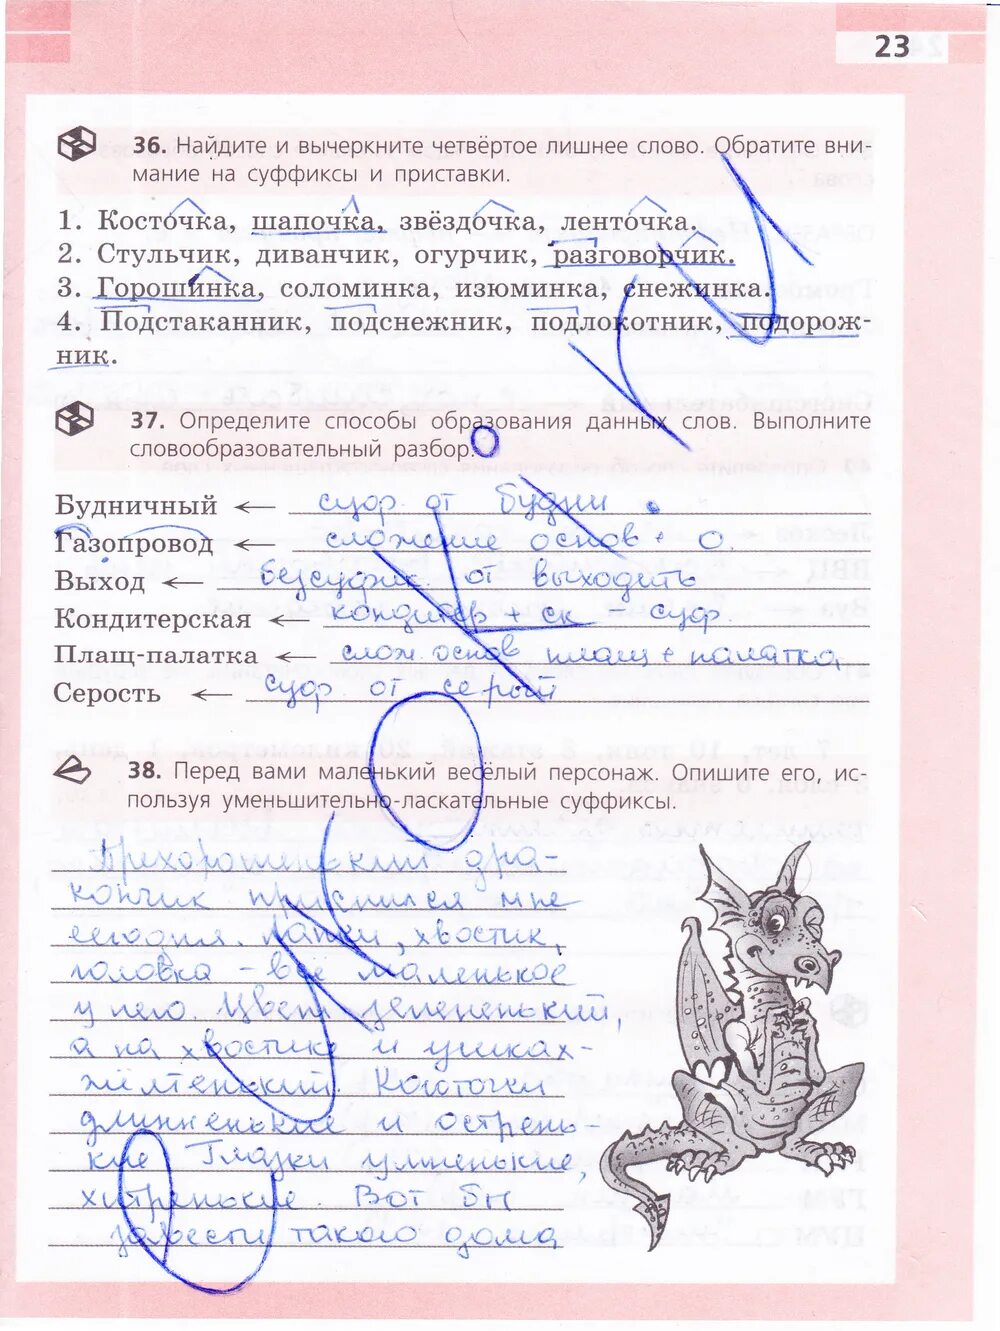 23
36. Найдите и вычеркните четвёртое лишнее слово. Обратите вни-
мание на суффиксы и приставки.
1. Косточка, шапочка, звёздочка, ленточка.
2. Стульчик, диванчик, огурчик, разговорчик.
3. Горошинка, соломинка, изюминка, снежинка.
4. Подстаканник, подснежник, подлокотник, подорож-
ник.
37. Определите способы образования данных слов. Выполните
словообразовательный разбор.
Будничный ← суф. от будни
Газопровод ← сложение основ + о
Выход ← безсуфик от выходить
Кондитерская ← кондитер + ск суф.
Плащ-палатка ← слож. основ плащ + палатка
Серость ← суф. от серый
38. Перед вами маленький весёлый персонаж. Опишите его, ис-
пользуя уменьшительно-ласкательные суффиксы.
Прехорошенький дра-
кончик приснился мне
сегодня. Лапки, хвостик,
головка - всё маленькое
у него. Цвет зелененький,
а на хвостике и ушках-
жёлтенький Коготочки
длинненькие и острень-
кие Глазки умненькие,
хитренькие. Вот бы
завести такого дома